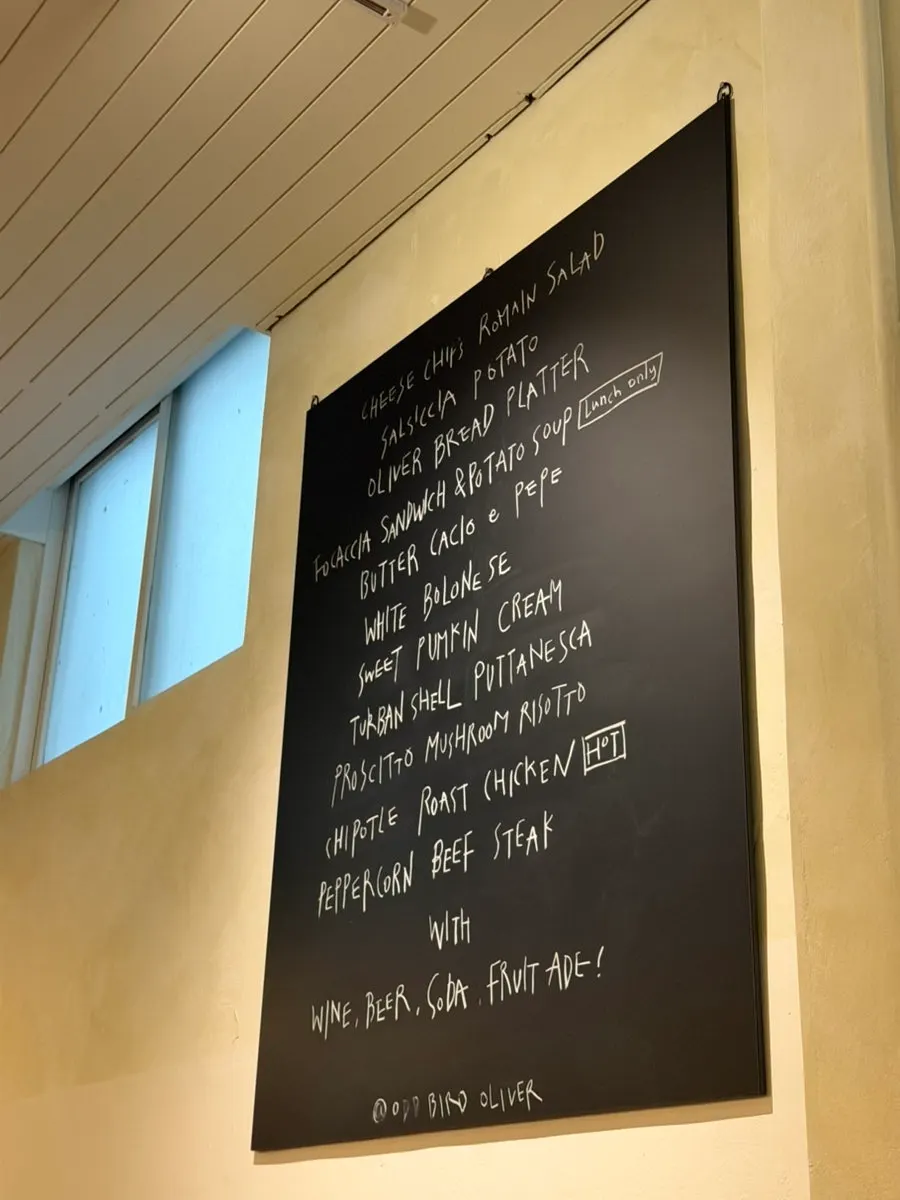 CHEESE CHIPS ROMAIN SALAD
SALSICCIA POTATO
OLIVER BREAD PLATTER
FOCACCIA SANDWICH & POTATO SOUP Lunch only
BUTTER CACIO e PEPE
WHITE BOLONESE
SWEET PUMKIN CREAM
TURBAN SHELL PUTTANESCA
PROSCITTO MUSHROOM RISOTTO
CHIPOTLE ROAST CHICKEN HOT
PEPPERCORN BEEF STEAK
WITH
WINE, BEER, SODA, FRUIT ADE!
@ODD BIRD OLIVER